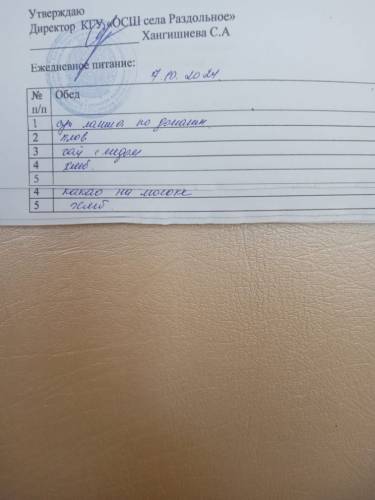 Утверждаю
Директор КГУ «ОСШ села Раздольное»
Хангишиева С.А
Ежедневное питание:
7.10.2024
№ п/п Обед
1 суп лапша по домашн
2 плов
3 чай с медом
4 хлеб
5
4 какао на молоке
5 хлеб